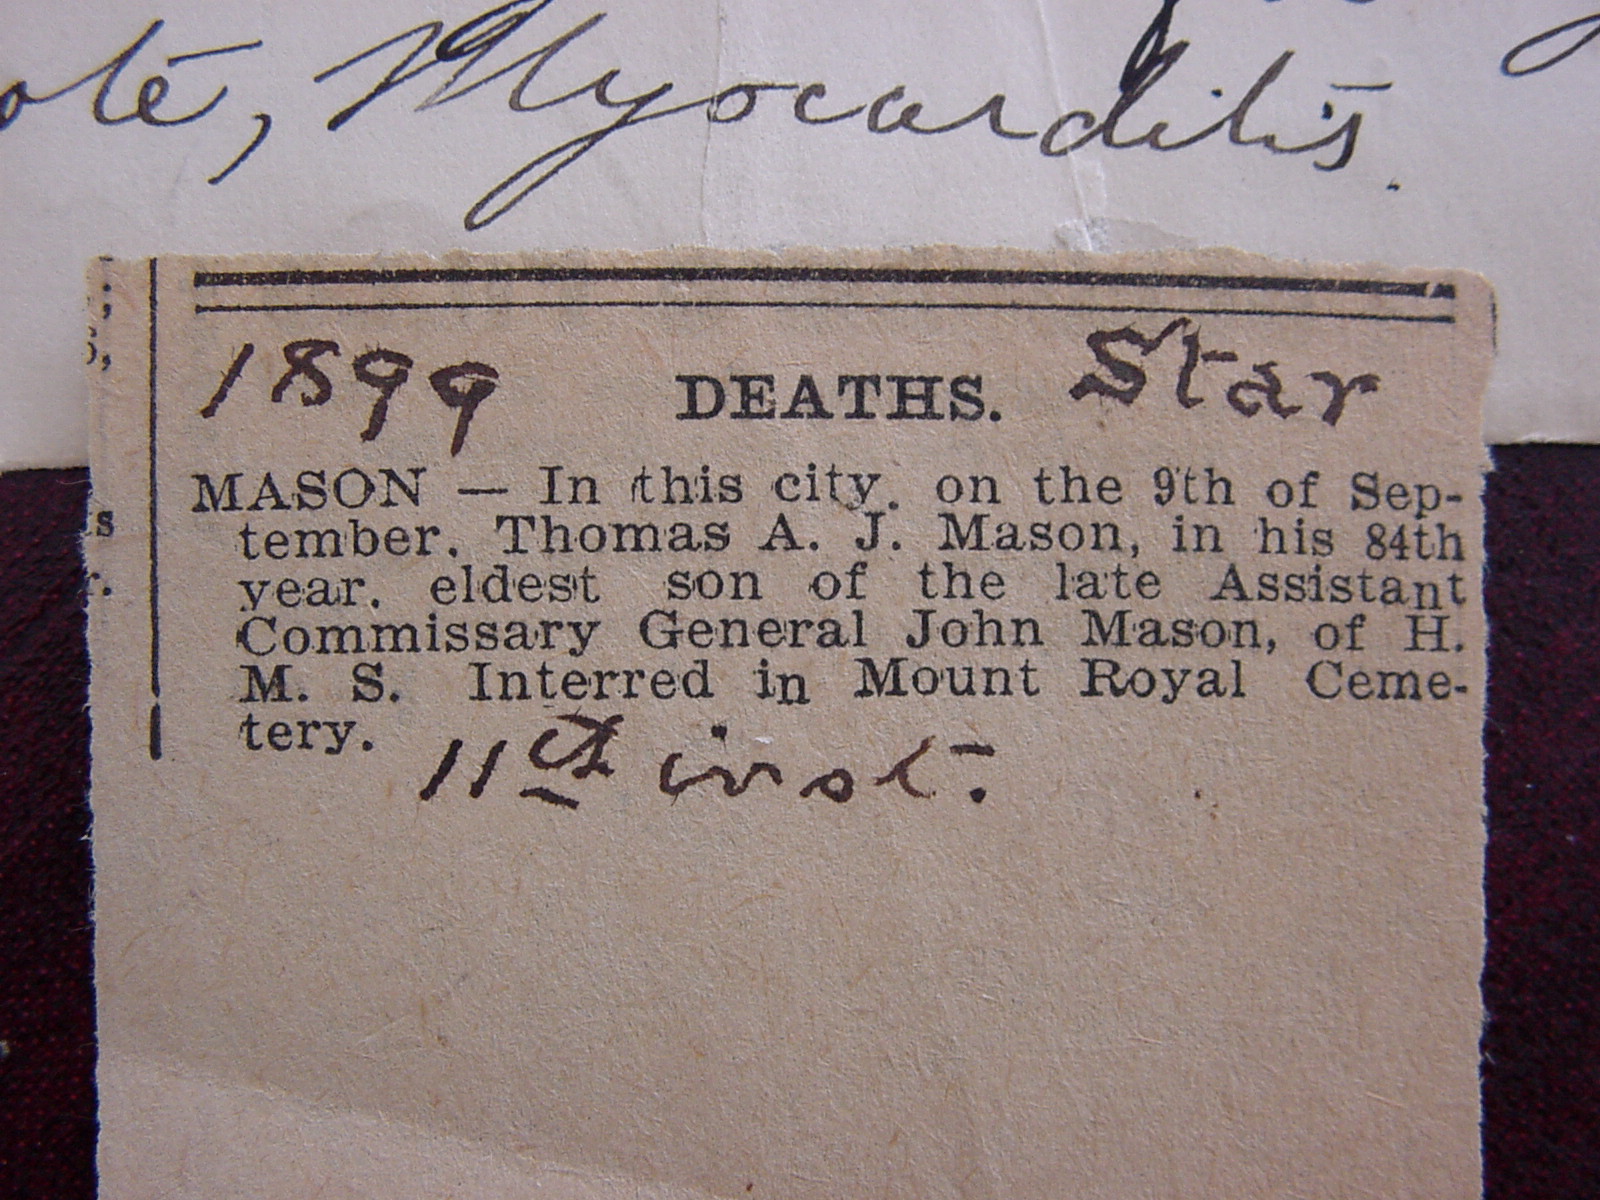 Myocarditis.
1899 DEATHS. Star
MASON — In this city. on the 9th of Sep-
tember. Thomas A. J. Mason, in his 84th
year. eldest son of the late Assistant
Commissary General John Mason, of H.
M. S. Interred in Mount Royal Ceme-
tery.
11th inst.